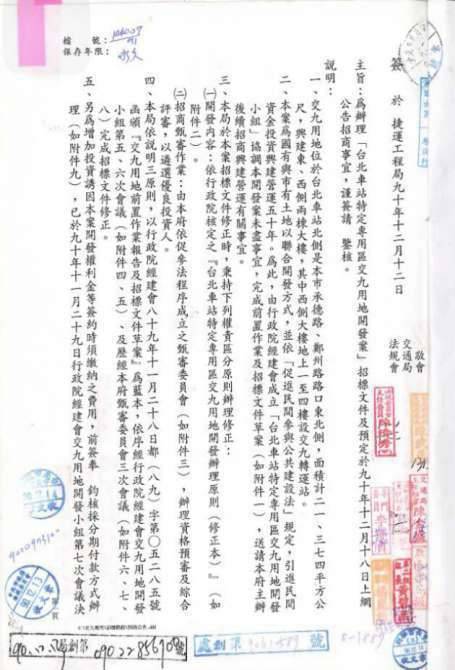 檔　號：
保存年限：永久
簽　於　捷運工程局九十年十二月十二日
敬會
交通局
法規會
主旨：為辦理「台北車站特定專用區交九用地開發案」招標文件及預定於九十年十二月十八日上網
公告招商事宜，謹簽請　鑒核。
說明：
一、交九用地位於台北車站北側是本市承德路、鄭州路路口東北側，面積計二一、三七四平方公
尺，興建東、西側兩棟大樓，其中西側大樓地上一至四樓設交九轉運站。
二、本案為國有與市有土地以聯合開發方式，並依「促進民間參與公共建設法」規定，引進民間
資金投資興建營運五十年。為此，由行政院經建會成立「台北車站特定專用區交九用地開發
小組」協調本開發案未盡事宜，完成前置作業及招標文件草案（如附件一），送請本府主辦
後續招商興建營運有關事宜。
三、本局於本案招標文件修正時，秉持下列權責區分原則辦理修正：
㈠開發內容：依行政院核定之『台北車站特定專用區交九用地開發辦理原則（修正本）』（如
附件二）。
㈡招商甄審作業：由本府依促參法程序成立之甄審委員會（如附件三），辦理資格預審及綜合
評審，以遴選優良投資人。
四、本局依說明三原則，以行政院經建會八十九年十一月二十八日都（八九）字第○五二八五號
函頒『交九用地前置作業報告及招標文件草案』為藍本，依序經行政院經建會交九用地開發
小組第五、六次會議（如附件四、五）、及歷經本府甄審委員會三次會議（如附件六、七、
八）完成招標文件修正。
五、另為增加投資誘因本案開發權利金等簽約時須繳納之費用，前簽奉　鈞核採分期付款方式辦
理（如附件九），已於九十年十一月二十九日行政院經建會交九用地開發小組第七次會議決
90.12.14
90.12.13
處創第9061589號